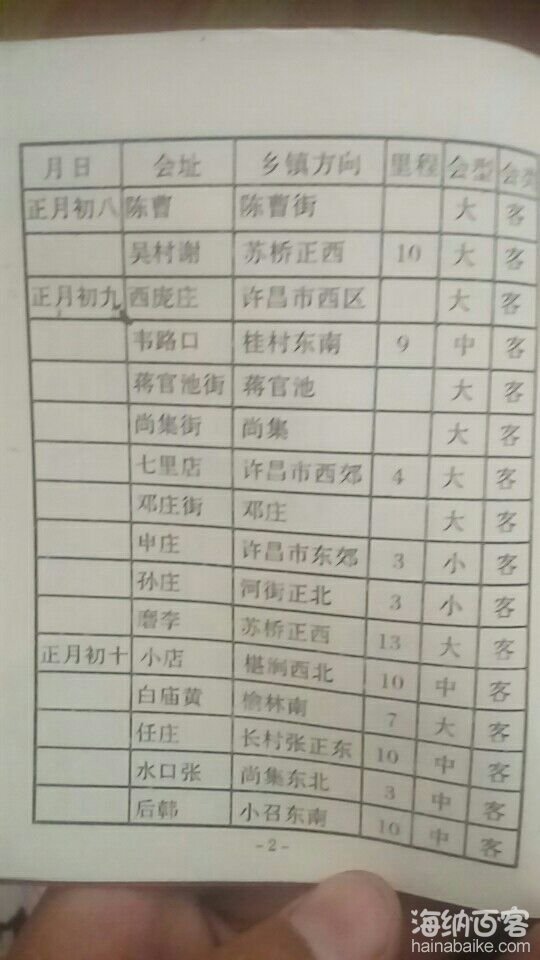 月日 会址 乡镇方向 里程 会型 会类
正月初八 陈曹 陈曹街 大 客
吴村谢 苏桥正西 10 大 客
正月初九 西庞庄 许昌市西区 大 客
韦路口 桂村东南 9 中 客
蒋官池街 蒋官池 大 客
尚集街 尚集 大 客
七里店 许昌市西郊 4 大 客
邓庄街 邓庄 大 客
申庄 许昌市东郊 3 小 客
孙庄 河街正北 3 小 客
磨李 苏桥正西 13 大 客
正月初十 小店 椹涧西北 10 中 客
白庙黄 榆林南 7 大 客
任庄 长村张正东 10 中 客
水口张 尚集东北 3 中 客
后韩 小召东南 10 中 客
-2-
海纳百客
hainabaike.com